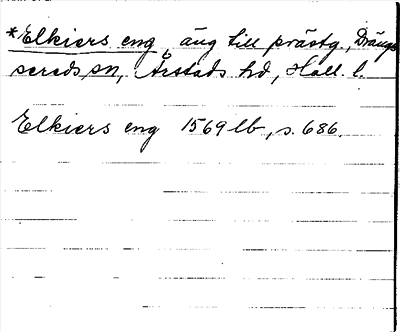 *Elkiers eng, äng till prästg., Drängs
sereds sn, Årstads hd, Hall. l.
Elkiers eng 1569 lb, s. 686.